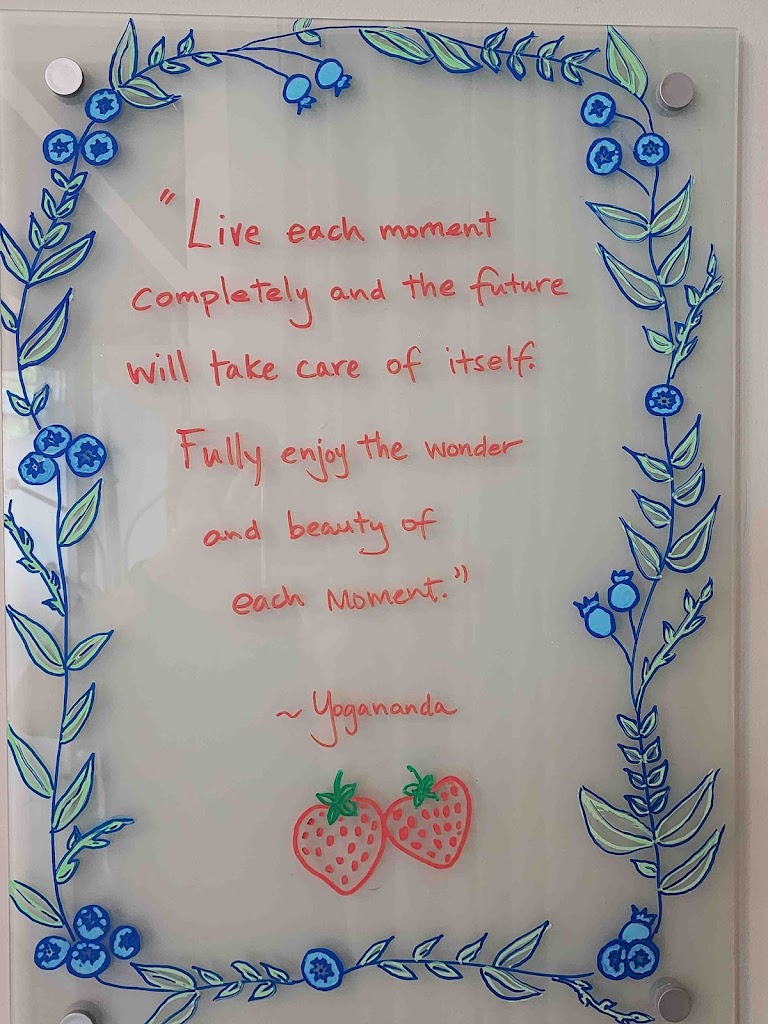 "Live each moment
completely and the future
will take care of itself.
Fully enjoy the wonder
and beauty of
each Moment."
~ Yogananda